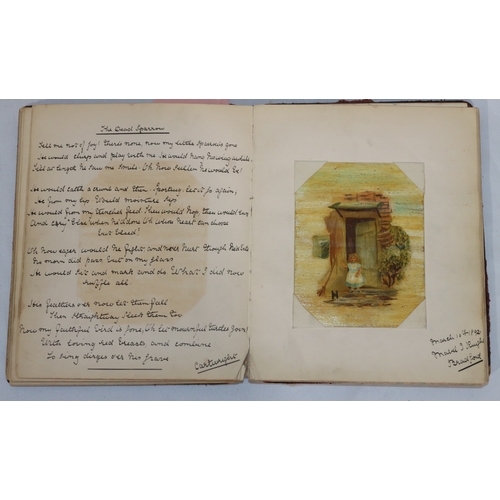 The Dead Sparrow
Tell me not of joy! there's none, now my little sparrow's gone
He would chirp and play with me He would hang the wing awhile
Till at length he saw me smile. Oh how sullen he would be!
He would catch a crumb and then Sporting let it go again,
He from my lip Would moisture sip
He would from my trencher feed Then would hop, then would run
And cry "
but bleed!
Oh how eager would he fight: and never hurt though he did bite
No morn did pass, but on my glass
He would sit and mark and do What I did now
ruffle all.
His feathers o'er now let them fall
Then straightway sleek them too
Now my faithful bird is gone, Oh let mournful turtles join
With loving red breasts, and combine
To sing dirges o'er his grave
Cartwright
March 10th
Mabel J.
Bradford